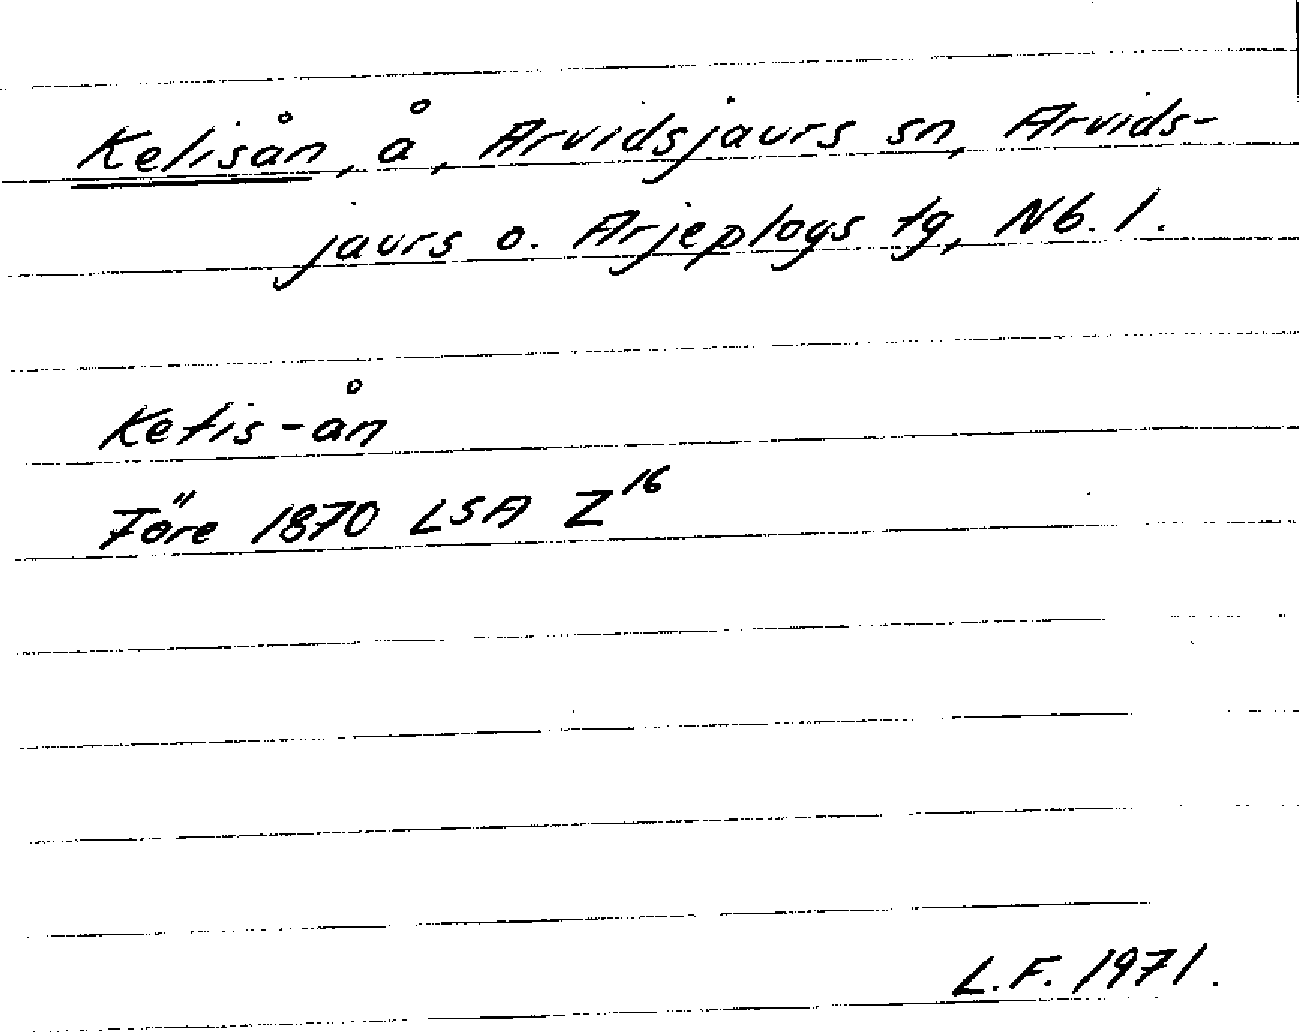 Kelisån, å, Arvidsjaurs sn, Arvids-
jaurs o. Arjeplogs tg, Nb. l.
Ketis-ån
Före 1870 LSA Z16
L.F. 1971.